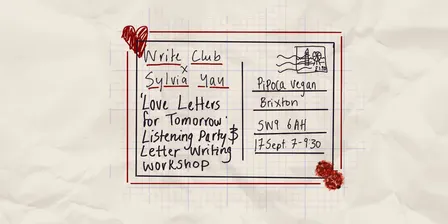 Write Club
x
Sylvia Yau
'Love Letters
for Tomorrow'
Listening Party &
Letter Writing
Workshop
Pipoca Vegan
Brixton
SW9 6AH
17 Sept. 7-9:30